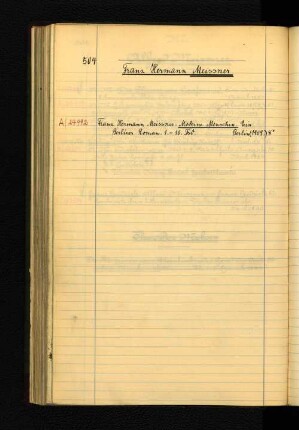 504
Franz Hermann Meissner
A/ Franz Hermann Meissner: Moderne Menschen. Ein
Berliner Roman. 1.-10. Tsd. Berlin, 1909. 8°